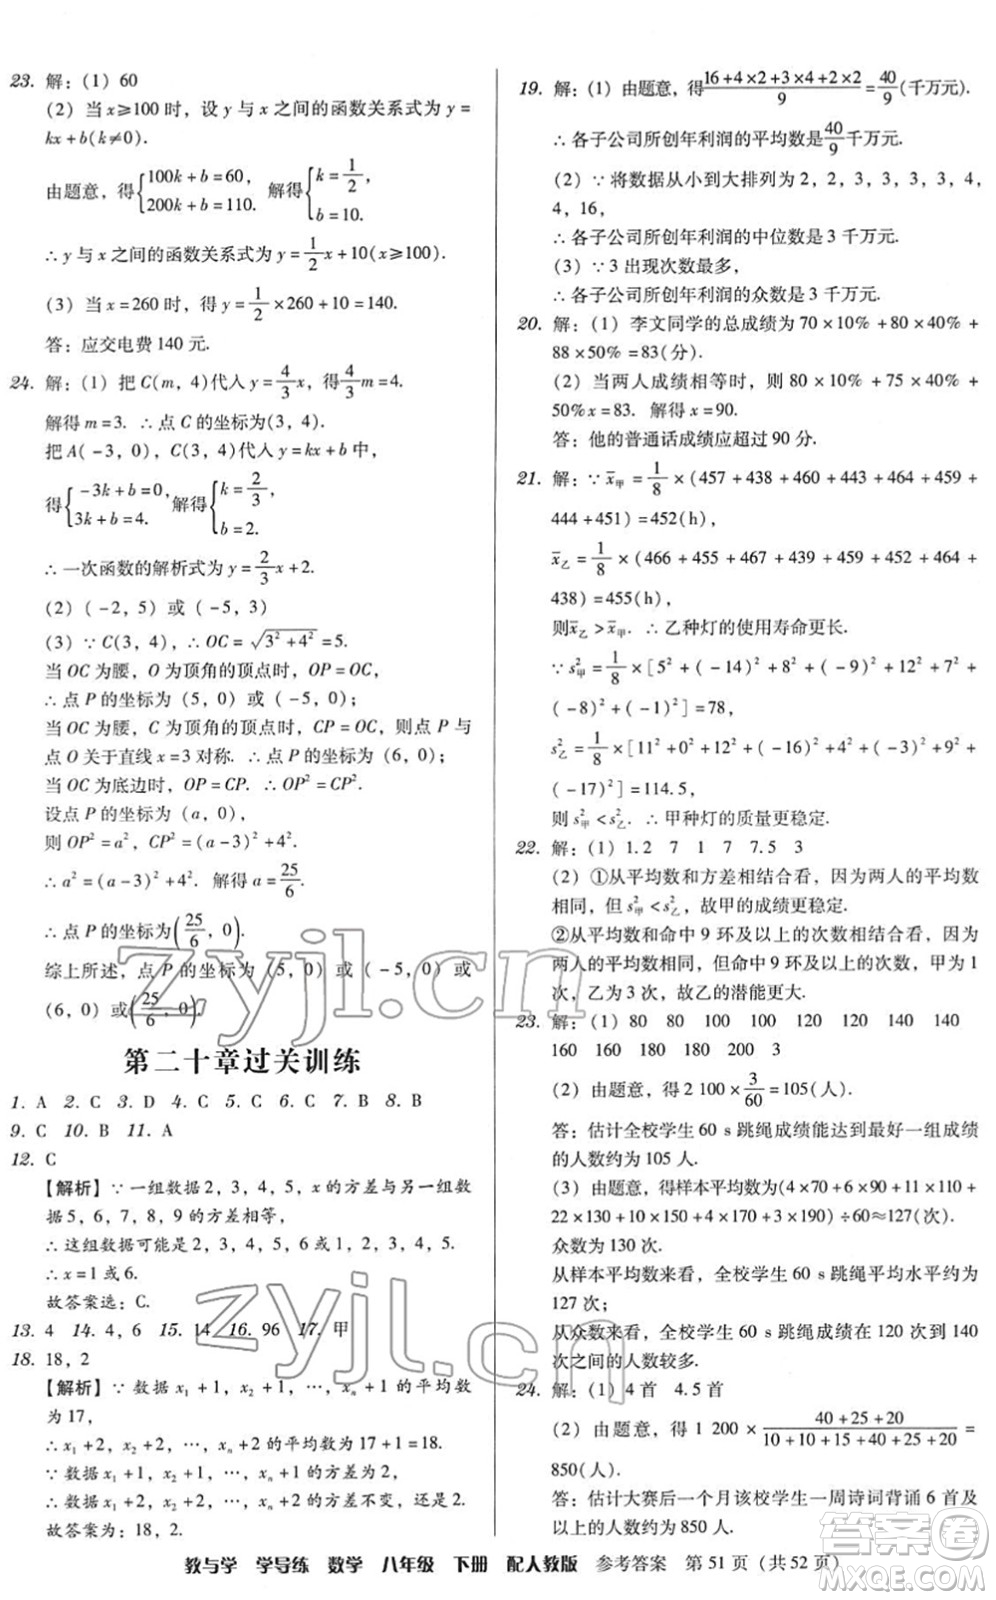 23. 解：(1) 60
(2) 当 x≥100 时，设 y 与 x 之间的函数关系式为 y=
kx+b(k≠0).
由题意，得{100k+b=60, 200k+b=110. 解得{k=1/2, b=10.
∴ y 与 x 之间的函数关系式为 y=1/2x+10(x≥100).
(3) 当 x=260 时，得 y=1/2×260+10=140.
答：应交电费 140 元.
24. 解：(1) 把 C(m, 4)代入 y=4/3x, 得4/3m=4.
解得 m=3. ∴点 C 的坐标为(3, 4).
把 A(-3, 0), C(3, 4)代入 y=kx+b 中,
得{-3k+b=0, 3k+b=4. 解得{k=2/3, b=2.
∴一次函数的解析式为 y=2/3x+2.
(2) (-2, 5) 或 (-5, 3)
(3) ∵C(3, 4), ∴OC=√(3²+4²)=5.
当 OC 为腰，O 为顶角的顶点时，OP=OC,
∴点 P 的坐标为 (5, 0) 或 (-5, 0);
当 OC 为腰，C 为顶角的顶点时，CP=OC, 则点 P 与
点 O 关于直线 x=3 对称. ∴点 P 的坐标为 (6, 0);
当 OC 为底边时，OP=CP. ∴OP²=CP².
设点 P 的坐标为 (a, 0),
则 OP²=a², CP²=(a-3)²+4².
∴a²=(a-3)²+4². 解得 a=25/6.
∴点 P 的坐标为(25/6, 0).
综上所述，点 P 的坐标为 (5, 0) 或 (-5, 0) 或
(6, 0) 或(25/6, 0).
第二十章过关训练
1. A 2. C 3. D 4. C 5. C 6. C 7. B 8. B
9. C 10. B 11. A
12. C
【解析】∵一组数据 2, 3, 4, 5, x 的方差与另一组数
据 5, 6, 7, 8, 9 的方差相等,
∴这组数据可能是 2, 3, 4, 5, 6 或 1, 2, 3, 4, 5.
∴x=1 或 6.
故答案选：C.
13. 4 14. 4, 6 15. 14 16. 96 17. 甲
18. 18, 2
【解析】∵数据 x₁+1, x₂+1, …, xₙ+1 的平均数
为 17,
∴x₁+2, x₂+2, …, xₙ+2 的平均数为 17+1=18.
∵数据 x₁+1, x₂+1, …, xₙ+1 的方差为 2,
∴数据 x₁+2, x₂+2, …, xₙ+2 的方差不变，还是 2.
故答案为：18, 2.
19. 解：(1) 由题意，得(16+4×2+3×4+2×2)/9=40/9(千万元).
∴各子公司所创年利润的平均数是40/9千万元.
(2) ∵将数据从小到大排列为 2, 2, 3, 3, 3, 3, 4,
4, 16,
∴各子公司所创年利润的中位数是 3 千万元.
(3) ∵3 出现次数最多,
∴各子公司所创年利润的众数是 3 千万元.
20. 解：(1) 李文同学的总成绩为 70×10%+80×40%+
88×50%=83(分).
(2) 当两人成绩相等时，则 80×10%+75×40%+
50%x=83. 解得 x=90.
答：他的普通话成绩应超过 90 分.
21. 解：∵x̄甲=1/8×(457+438+460+443+464+459+
444+451)=452(h),
x̄乙=1/8×(466+455+467+439+459+452+464+
438)=455(h),
则x̄乙>x̄甲. ∴乙种灯的使用寿命更长.
∵s²甲=1/8×[5²+(-14)²+8²+(-9)²+12²+7²+
(-8)²+(-1)²]=78,
s²乙=1/8×[11²+0²+12²+(-16)²+4²+(-3)²+9²+
(-17)²]=114.5,
则 s²甲<s²乙. ∴甲种灯的质量更稳定.
22. 解：(1) 1.2 7 1 7 7.5 3
(2) ①从平均数和方差相结合看，因为两人的平均数
相同，但 s²甲<s²乙, 故甲的成绩更稳定.
②从平均数和命中 9 环及以上的次数相结合看，因为
两人的平均数相同，但命中 9 环及以上的次数，甲为 1
次，乙为 3 次，故乙的潜能更大.
23. 解：(1) 80 80 100 100 120 120 140 140
160 160 180 200 2 3
(2) 由题意，得 2 100×3/60=105(人).
答：估计全校学生 60 s 跳绳成绩能达到最好一组成绩
的人数约为 105 人.
(3) 由题意，得样本平均数为(4×70+6×90+11×110+
22×130+10×150+4×170+3×190)÷60≈127(次).
众数为 130 次.
从样本平均数来看，全校学生 60 s 跳绳平均水平约为
127 次;
从众数来看，全校学生 60 s 跳绳成绩在 120 次到 140
次之间的人数较多.
24. 解：(1) 4 首 4.5 首
(2) 由题意，得 1 200×(40+25+20)/(10+10+15+40+25+20)=
850(人).
答：估计大赛后一个月该校学生一周诗词背诵 6 首及
以上的人数约为 850 人.
教与学 学导练 数学 八年级 下册 配人教版 参考答案 第 51 页（共 52 页）
zyjl.cn
zyjl.cn
作业精灵